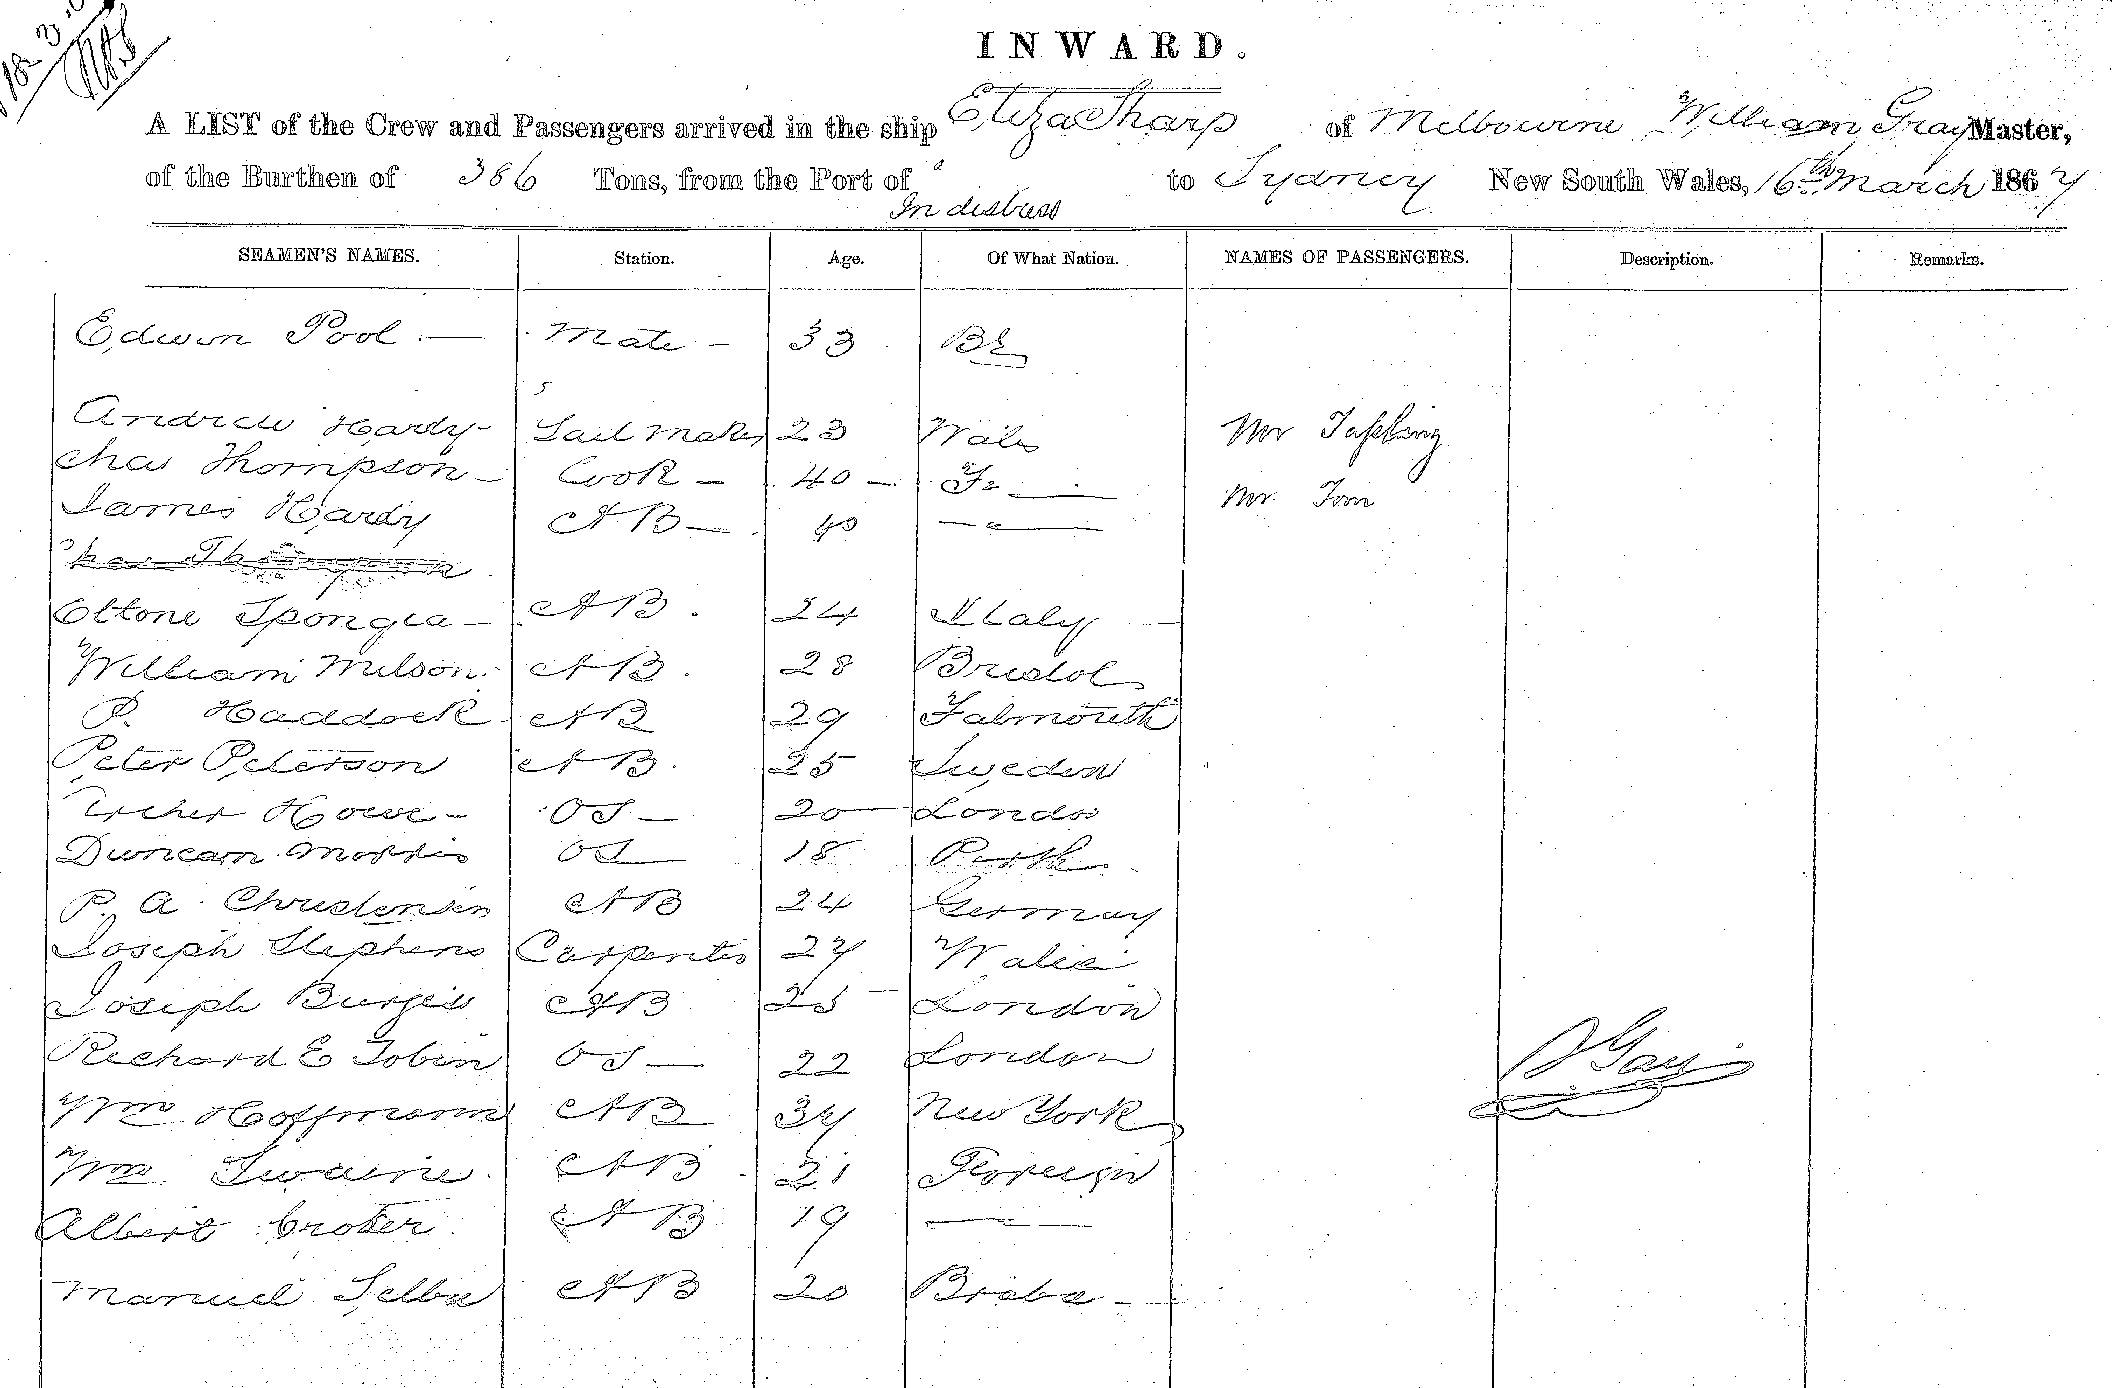 INWARD.
A LIST of the Crew and Passengers arrived in the ship Eliza Sharp of Melbourne William Gray Master,
of the Burthen of 386 Tons, from the Port of to Sydney New South Wales, 16th March 1867
In distress
SEAMEN'S NAMES. Station. Age. Of What Nation. NAMES OF PASSENGERS. Description. Remarks.
Edwin Pool - Mate - 33 Br
Andrew Hardy - Sail Maker 23 Wales Mr Tapling
Chas Thompson - Cook - 40 -
Mr Tom
James Hardy AB - 40
Chas Thompson
Ottone Spongia - AB. 24 Italy
William Milson. AB. 28 Bristol
P. Haddock AB 29 Falmouth
Peter Peterson AB. 25 Sweden
Archer Howe - OS - 20 - London
Duncan Morris OS 18 Perth
P. A. Christensen AB 24 Germany
Joseph Stephens Carpenter 27 Wales
Joseph Burgess AB 25 London
Richard E Tobin OS - 22 London
Wm Hoffmann AB 34 New York
Wm Swaine. AB 21 Foreign
Albert Croker. AB 19
Manuel AB 20